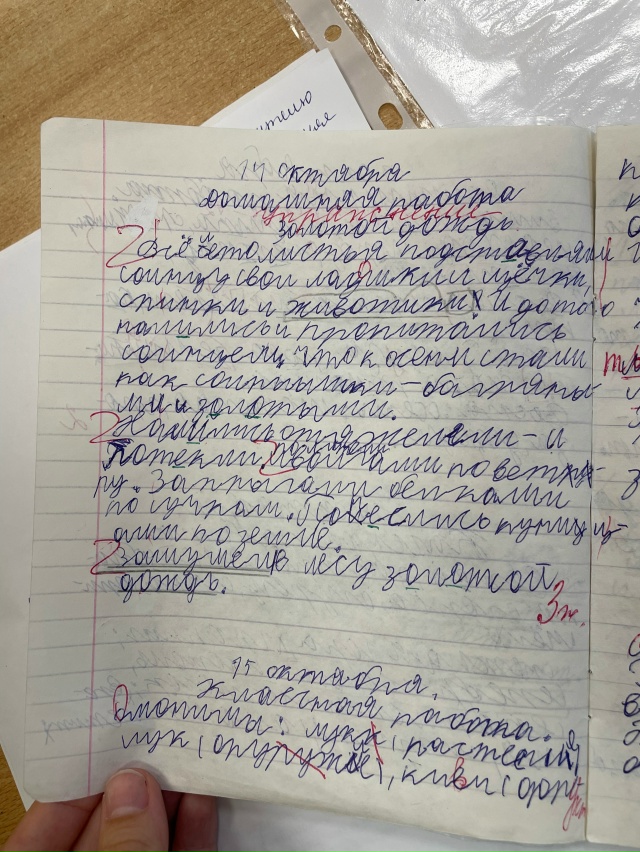 14 октября
домашняя работа
упражнение
Золотой дождь
Всё лето листья подставляли
солнцу свои ладошки и щёчки,
спинки и животики. И до того
налились и пропитались
солнцем, что к осени стали
как солнышки – багряны-
ми и золотыми.
Налились, отяжелели – и
потекли. иволгами по вет-
ру. Запрыгали белками
по сучкам. Понеслись куниц-
ами по земле.
Зашумел в лесу золотой
дождь.
3
15 октября.
Классная работа.
Омонимы: лук (растений)
лук (оружие), киви (